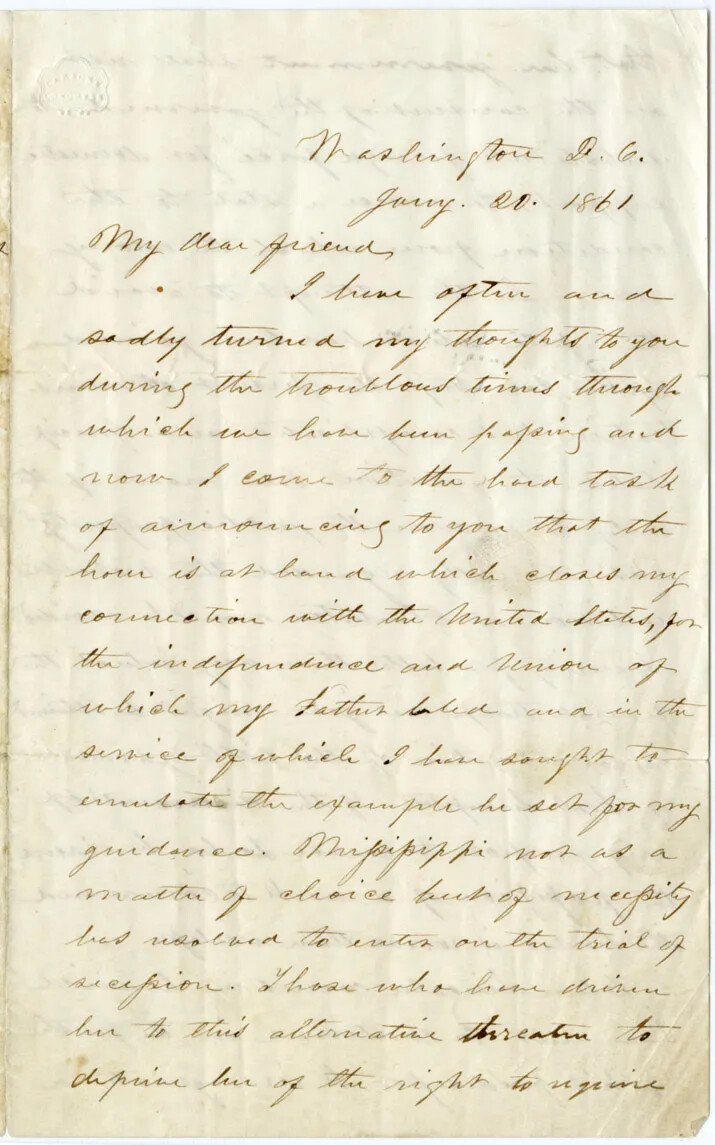 Washington D. C.
Jany. 20. 1861
My dear friend,
I have often and
sadly turned my thoughts to you
during the troublous times through
which we have been passing and
now I come to the hard task
of announcing to you that the
hour is at hand which closes my
connection with the United States, for
the independence and Union of
which my Father bled and in the
service of which I have sought to
emulate the example he set for my
guidance. Mississippi not as a
matter of choice but of necessity
has resolved to enter on the trial of
secession. Those who have driven
her to this alternative threaten to
deprive her of the right to require